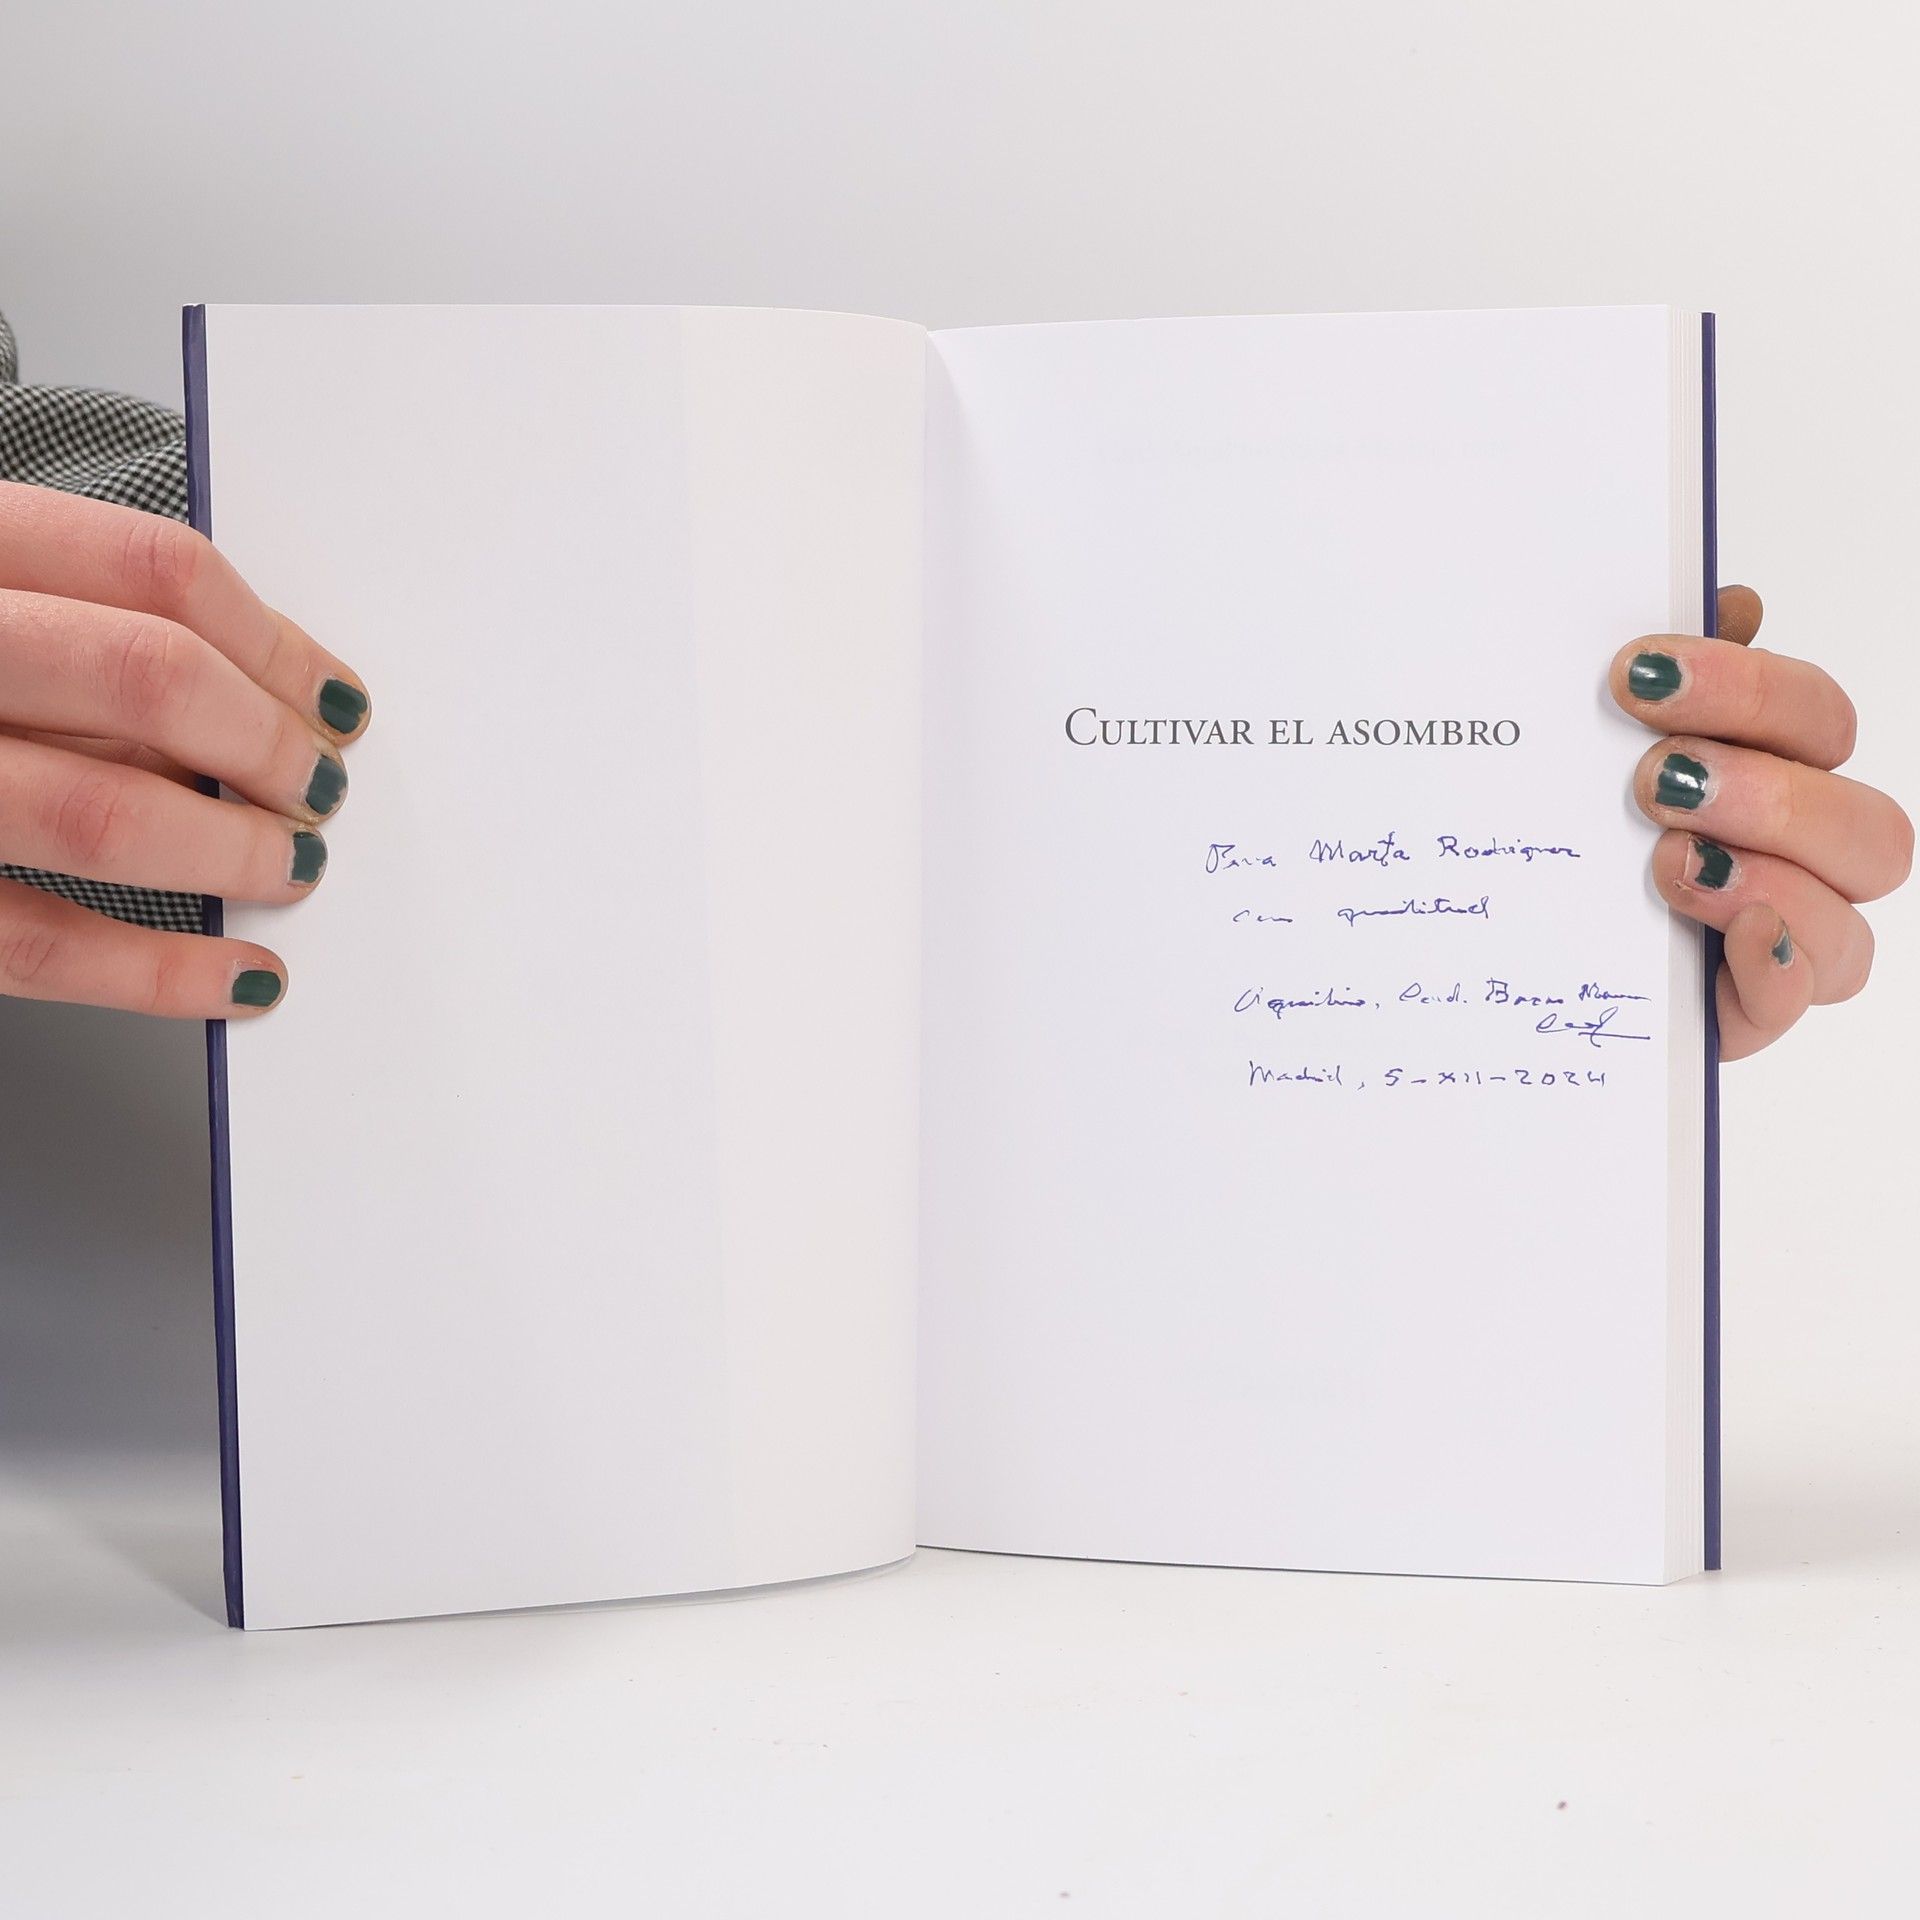 CULTIVAR EL ASOMBRO
Para Marta Rodriguez
con gratitud
Aquilino, Card. Bocos Merino
cmf
Madrid, 5-XII-2024